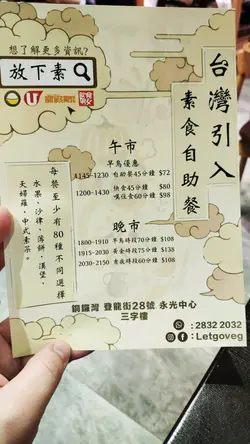 想了解更多資訊?
放下素
U
台灣引入
素食自助餐
午市
早鳥優惠
1145-1230 自助餐45分鐘 $72
1200-1430 快食45分鐘 $80
嘆住食60分鐘 $98
晚市
1800-1910 早鳥時段70分鐘 $108
1915-2030 黃金時段75分鐘 $138
2030-2150 夜夜時段60分鐘 $108
每餐至少有80種不同選擇
水果、沙律、薄餅、漢堡、
天婦羅、中式素菜。
銅鑼灣 登龍街28號 永光中心
三字樓
: 2832 2032
: Letgoveg